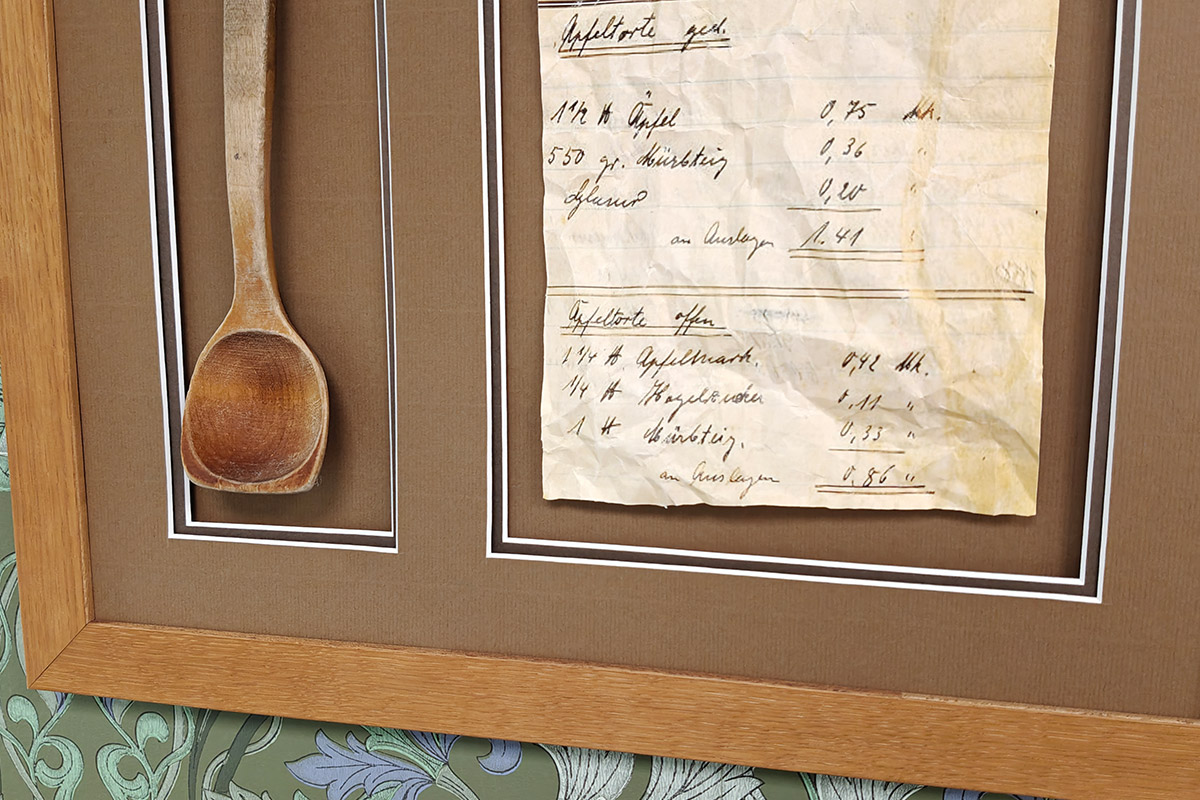 Äpfeltorte ged.
1 1/2 ℔ Äpfel 0,75 Mk.
550 gr. Mürbteig 0,36 "
Glasur 0,20 "
an Auslagen 1.41 "
Äpfeltorte offen
1 1/4 ℔ Apfelmark. 0,42 Mk.
1/4 ℔ Hagelzucker 0.11 "
1 ℔ Mürbteig. 0,33 "
an Auslagen 0.86 "